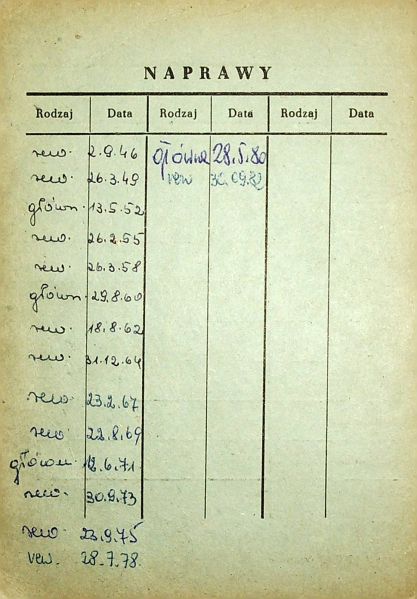 NAPRAWY
Rodzaj Data Rodzaj Data Rodzaj Data
rew. 2.9.46 główna 28.5.80
rew. 26.3.49 rew 30.09.82
główn. 13.5.52
rew. 26.2.55
rew. 26.3.58
główn. 29.8.60
rew. 18.8.62
rew. 31.12.64
rew. 23.2.67
rew. 22.8.69
główn. 12.6.71
rew. 30.9.73
rew. 23.9.75
rew. 28.7.78.